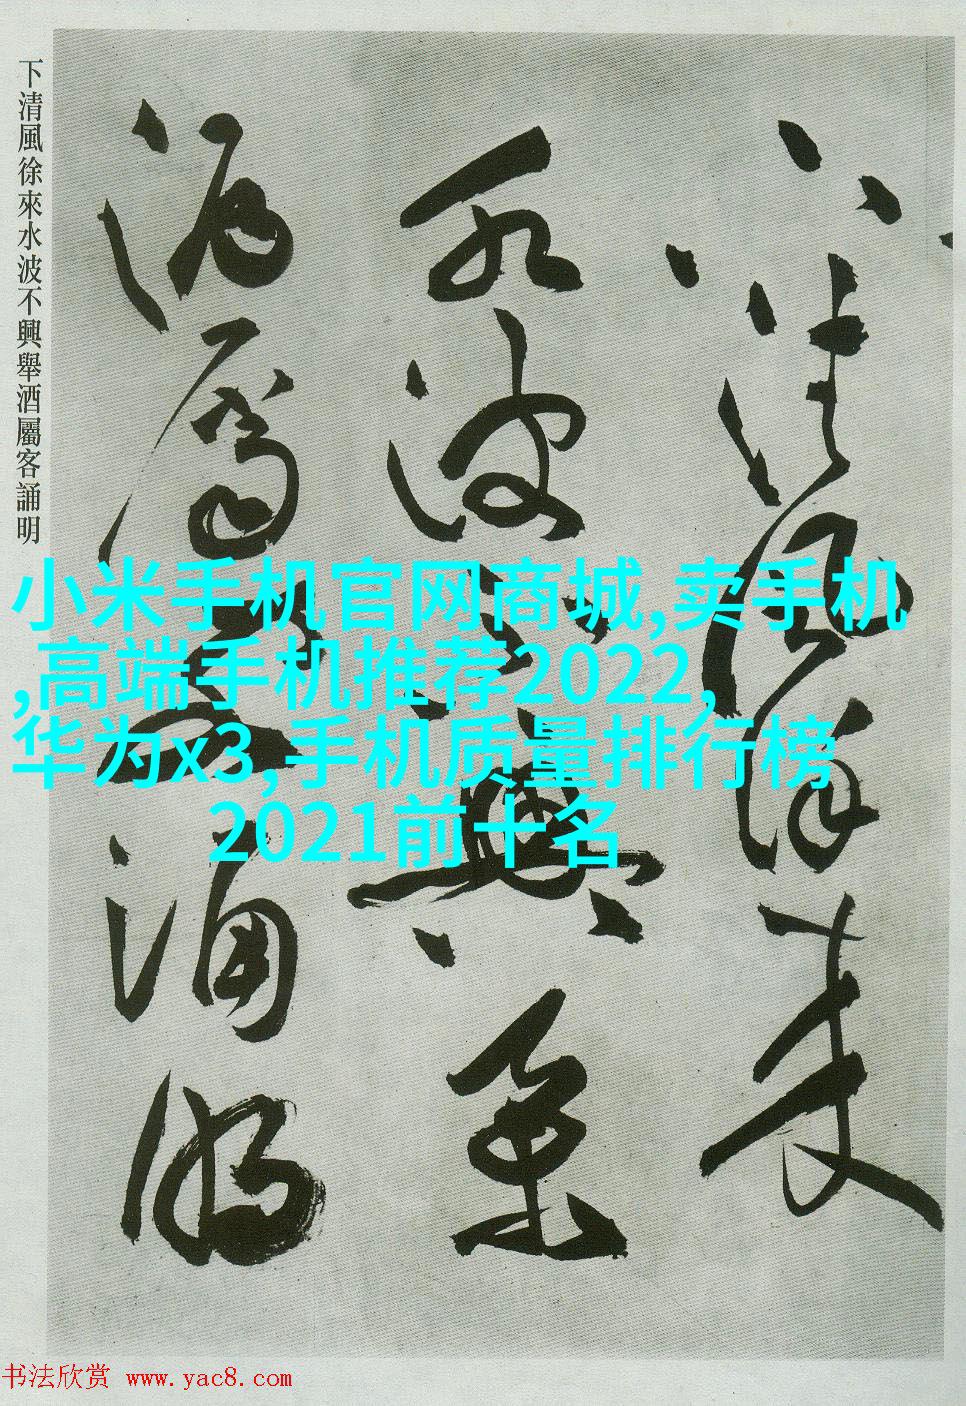 下清風徐來水波不興舉酒屬客誦明
下清風徐來
水波不興舉
酒屬客誦明
小米手机官网商城,卖手机
,高端手机推荐2022,
华为x3,手机质量排行榜
2021前十名
书法欣赏 www.yac8.com